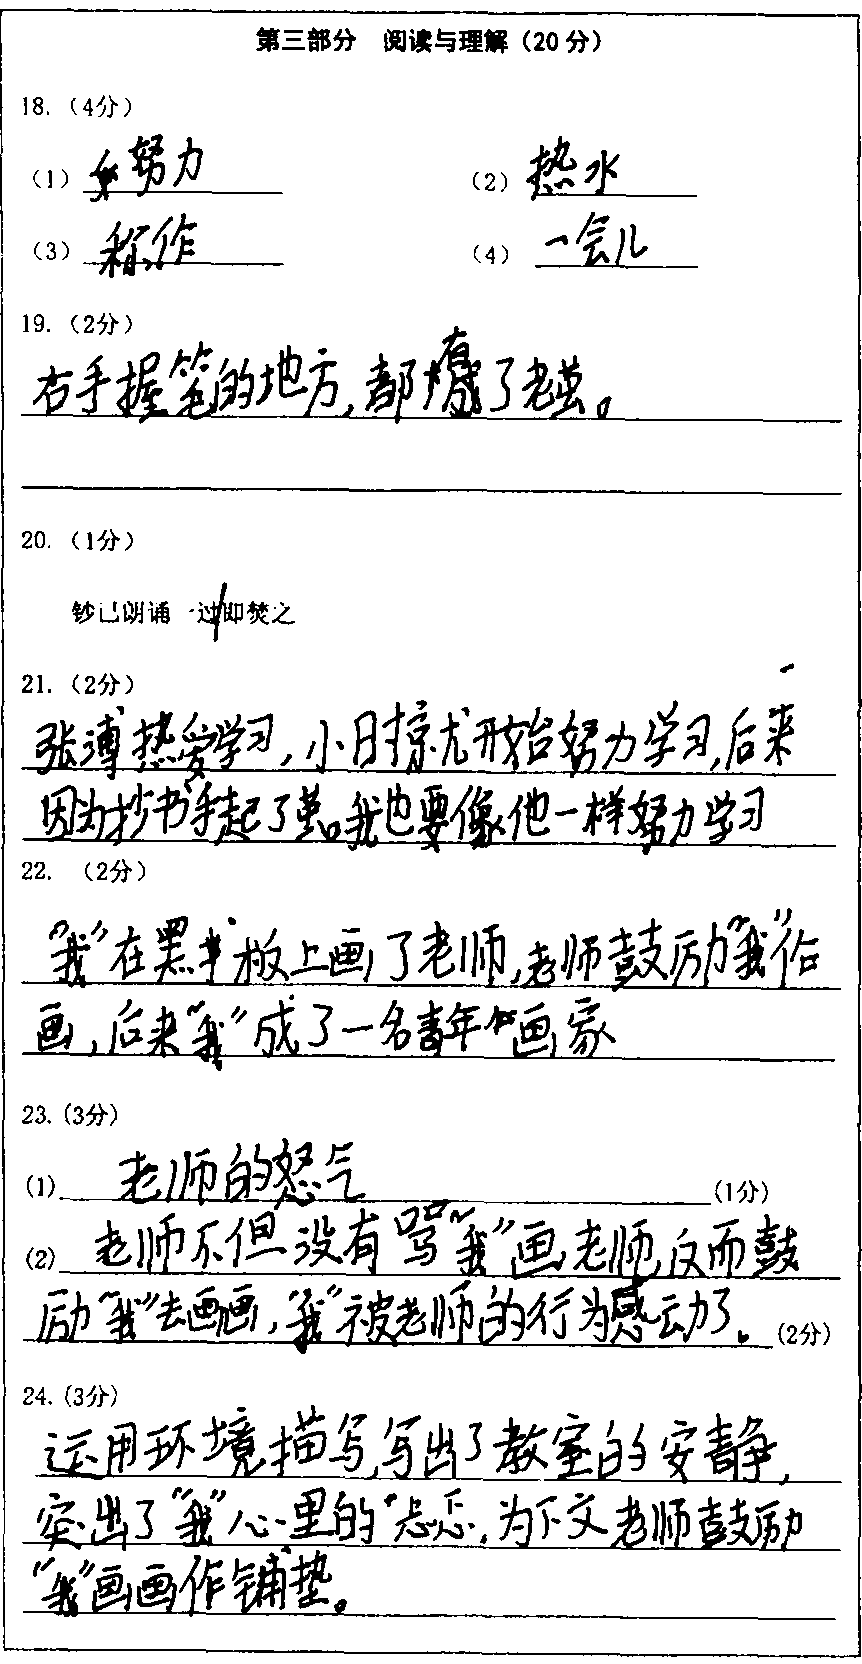 第三部分 阅读与理解（20分）
18.（4分）
（1）努力 （2）热水
（3）称作 （4）一会儿
19.（2分）
右手握笔的地方，都有了老茧。
20.（1分）
钞已朗诵一过/即焚之
21.（2分）
张溥热爱学习，小时候就开始努力学习，后来
因为抄书手起了茧。我也要像他一样努力学习
22.（2分）
“我”在黑板上画了老师，老师鼓励“我”
画，后来“我”成了一名青年画家
23.(3分)
(1) 老师的怒气 (1分)
(2) 老师不但没有骂“我”画老师，反而鼓
励“我”去画画，“我”被老师的行为感动了。(2分)
24.(3分)
运用环境描写，写出了教室的安静，
突出了“我”心里的忐忑，为下文老师鼓励
“我”画画作铺垫。